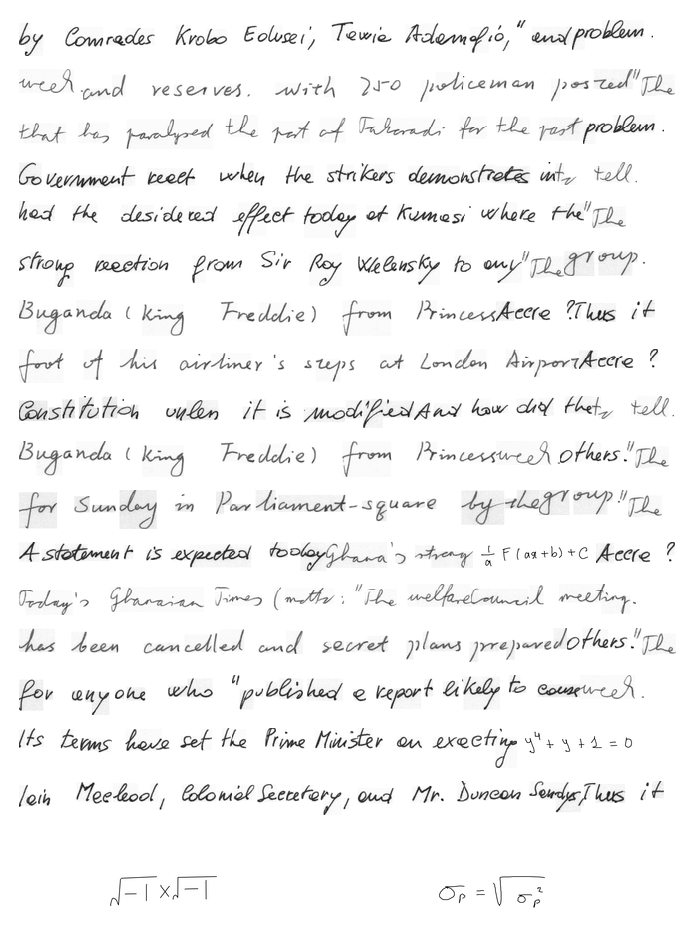 by Comrades Krobo Edusei, Tawia Adamafio," and problem.
week and reserves. with 750 policeman posted "The
that has paralysed the port of Takoradi for the past problem.
Government react when the strikers demonstrates into tell.
had the desidered effect today at Kumasi where the "The
strong reaction from Sir Roy Welensky to any "The group.
Buganda (King Freddie) from Princess Accra ? Thus it
foot of his airliner's steps at London Airport Accra ?
Constitution unlen it is modified And how did the tell.
Buganda (King Freddie) from Princess week others." The
for Sunday in Parliament-square by the group." The
A statement is expected today Ghana's strong \frac{1}{a} F(ax+b)+C Accra ?
Today's Ghanaian Times (motto: "The welfare Council meeting.
has been cancelled and secret plans prepared others." The
for anyone who "published a report likely to cause week.
Its terms have set the Prime Minister an exacting y^4 + y + 1 = 0
Iain Macleod, Colonial Secretary, and Mr. Duncan Sandys, Thus it
\sqrt{-1} \times \sqrt{-1} \sigma_p = \sqrt{\sigma_p^2}